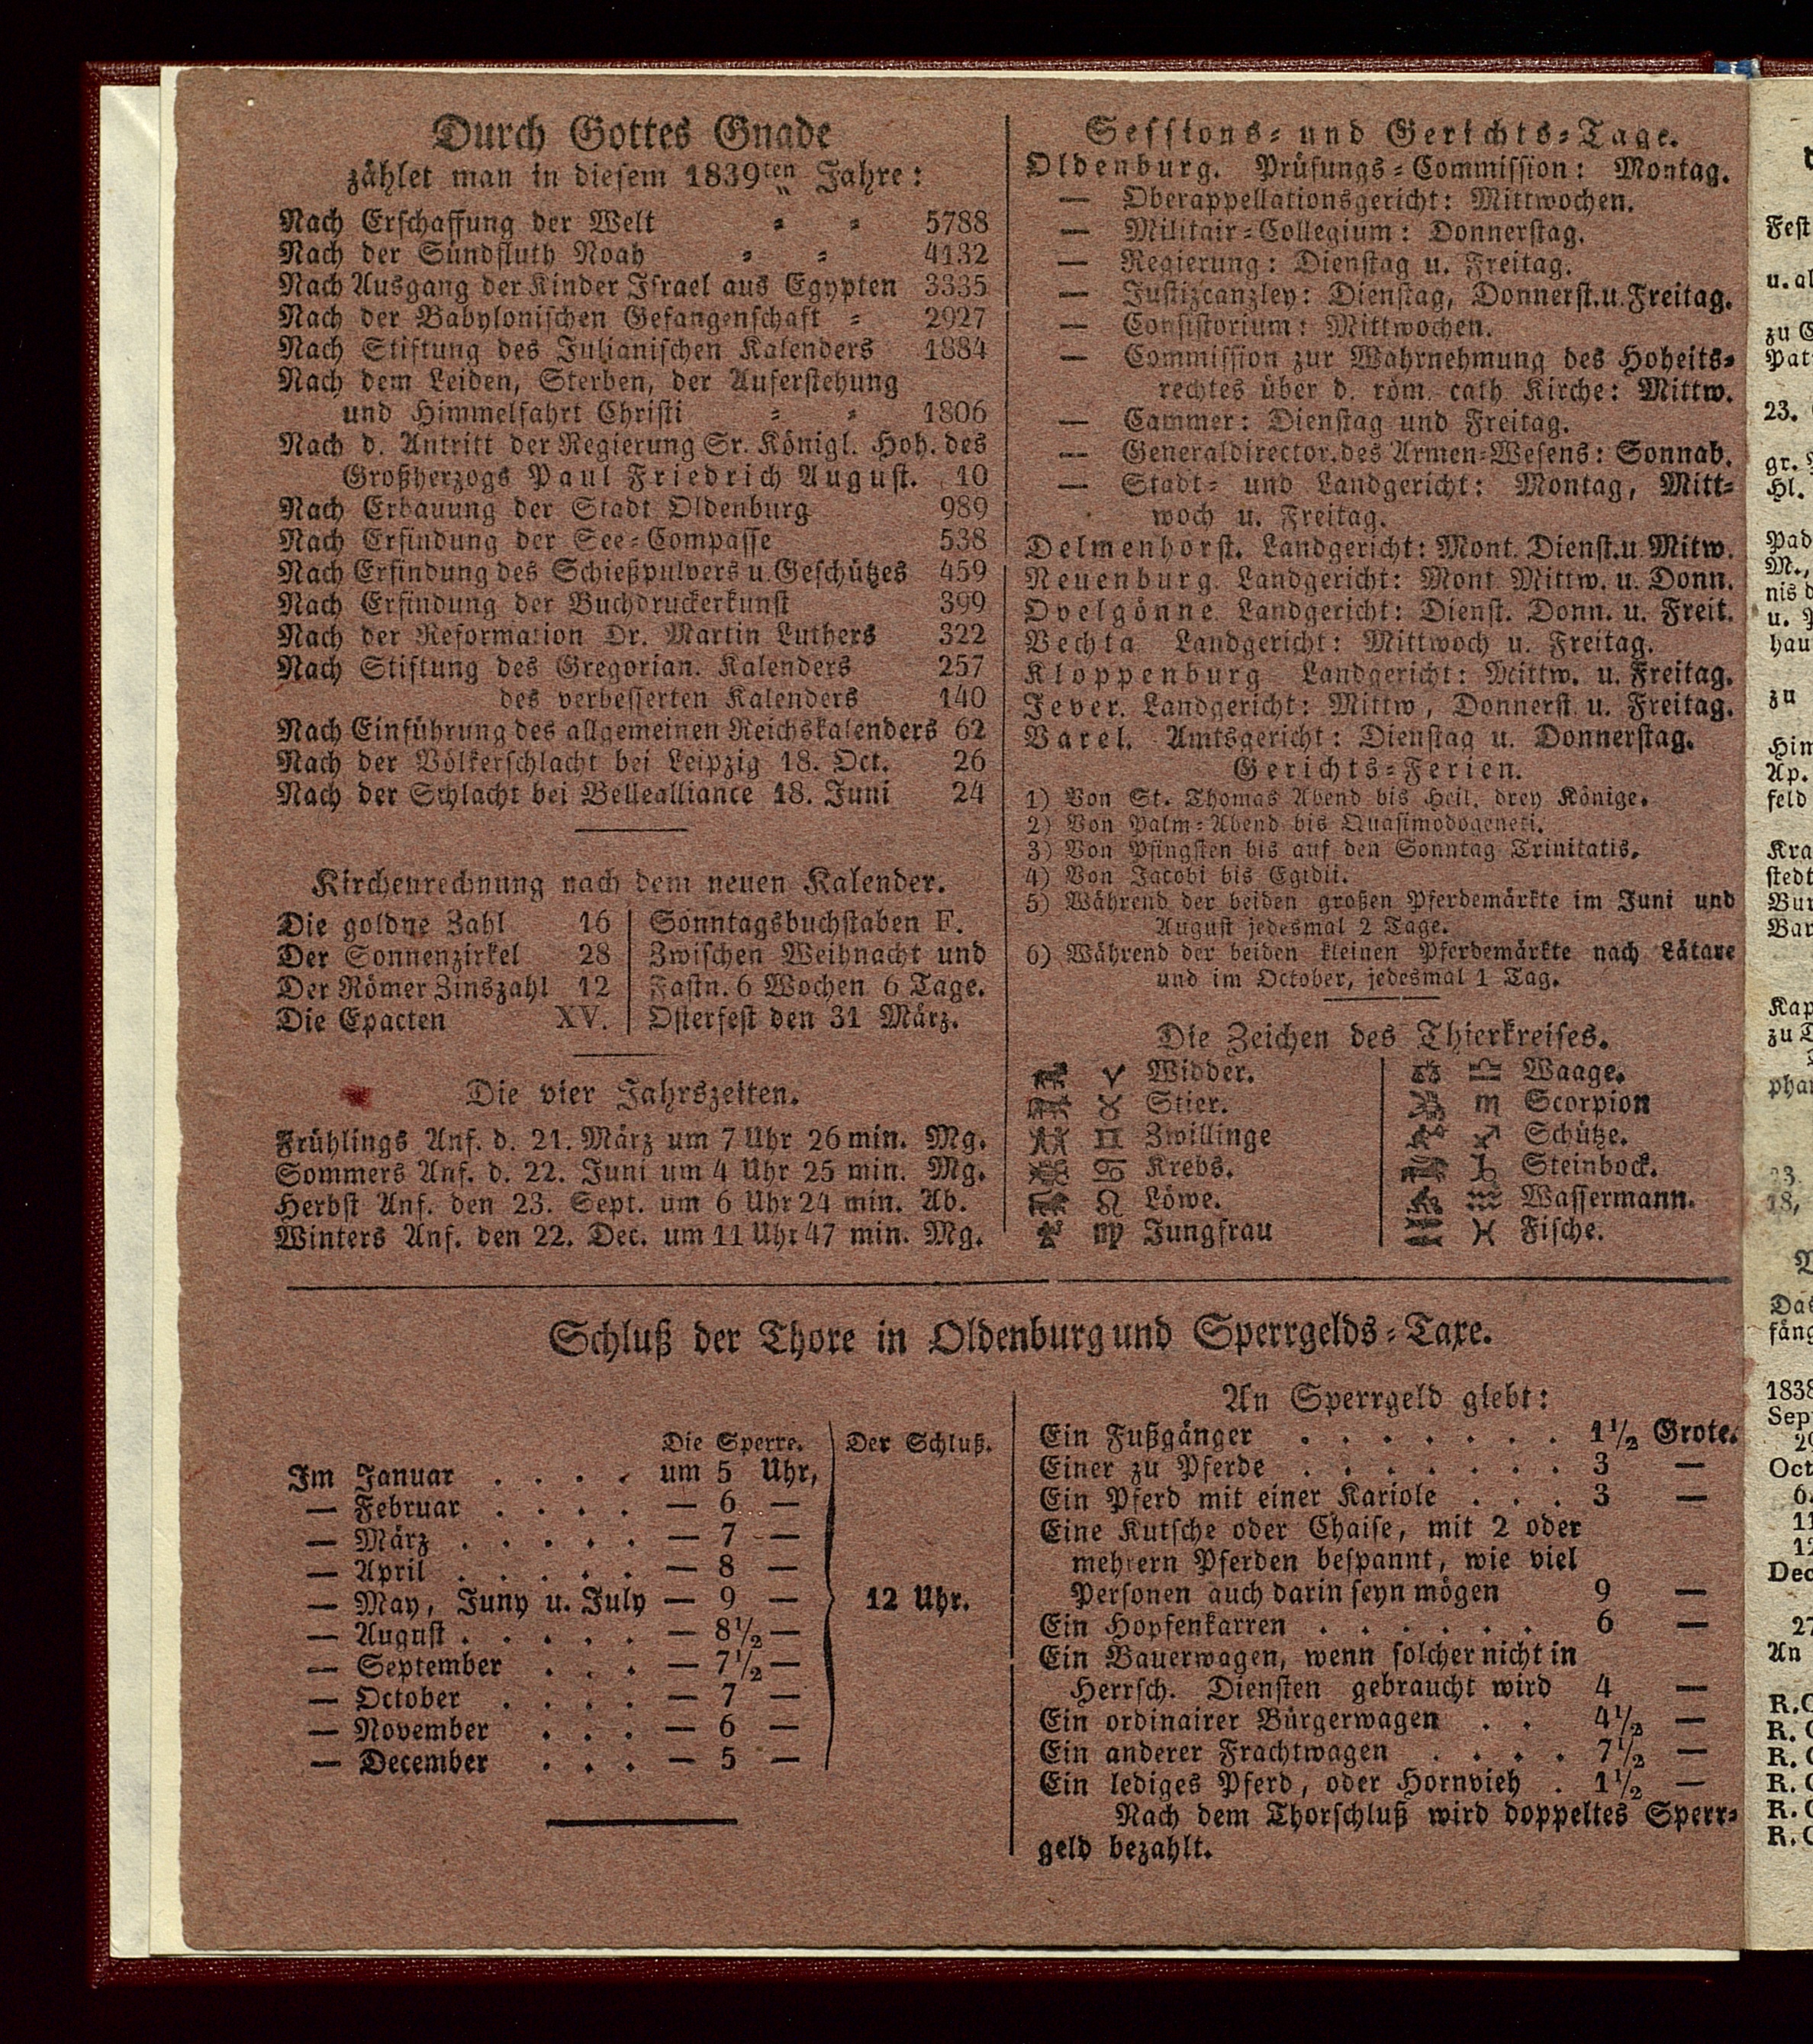 Durch Gottes Gnade
zählet man in diesem 1839ten Jahre:
Nach Erschaffung der Welt = = 5788
Nach der Sündfluth Noah = = 4132
Nach Ausgang der Kinder Israel aus Egypten 3335
Nach der Babylonischen Gefangenschaft = 2927
Nach Stiftung des Julianischen Kalenders 1884
Nach dem Leiden, Sterben, der Auferstehung
und Himmelfahrt Christi = = 1806
Nach d. Antritt der Regierung Sr. Königl. Hoh. des
Großherzogs Paul Friedrich August. 10
Nach Erbauung der Stadt Oldenburg 989
Nach Erfindung der See=Compasse 538
Nach Erfindung des Schießpulvers u. Geschützes 459
Nach Erfindung der Buchdruckerkunst 399
Nach der Reformation Dr. Martin Luthers 322
Nach Stiftung des Gregorian. Kalenders 257
des verbesserten Kalenders 140
Nach Einführung des allgemeinen Reichskalenders 62
Nach der Völkerschlacht bei Leipzig 18. Oct. 26
Nach der Schlacht bei Bellealliance 18. Juni 24
Kirchenrechnung nach dem neuen Kalender.
Die goldne Zahl 16
Der Sonnenzirkel 28
Der Römer Zinszahl 12
Die Epacten XV.
Sonntagsbuchstaben F.
Zwischen Weihnacht und
Fastn. 6 Wochen 6 Tage.
Osterfest den 31 März.
Die vier Jahrszeiten.
Frühlings Anf. d. 21. März um 7 Uhr 26 min. Mg.
Sommers Anf. d. 22. Juni um 4 Uhr 25 min. Mg.
Herbst Anf. den 23. Sept. um 6 Uhr 24 min. Ab.
Winters Anf. den 22. Dec. um 11 Uhr 47 min. Mg.
Sessions= und Gerichts=Tage.
Oldenburg. Prüfungs=Commission: Montag.
— Oberappellationsgericht: Mittwochen.
— Militair=Collegium: Donnerstag.
— Regierung: Dienstag u. Freitag.
— Justizcanzley: Dienstag, Donnerst. u. Freitag.
— Consistorium: Mittwochen.
— Commission zur Wahrnehmung des Hoheits=
rechtes über d. röm. cath Kirche: Mittw.
— Cammer: Dienstag und Freitag.
— Generaldirector. des Armen=Wesens: Sonnab.
— Stadt= und Landgericht: Montag, Mitt=
woch u. Freitag.
Delmenhorst. Landgericht: Mont. Dienst. u. Mitw.
Neuenburg. Landgericht: Mont Mittw. u. Donn.
Ovelgönne Landgericht: Dienst. Donn. u. Freit.
Vechta Landgericht: Mittwoch u. Freitag.
Kloppenburg Landgericht: Mittw. u. Freitag.
Jever. Landgericht: Mittw, Donnerst u. Freitag.
Varel. Amtsgericht: Dienstag u. Donnerstag.
Gerichts=Ferien.
1) Von St. Thomas Abend bis Heil. drey Könige.
2) Von Palm=Abend bis Quasimodogeneti.
3) Von Pfingsten bis auf den Sonntag Trinitatis.
4) Von Jacobi bis Egidii.
5) Während der beiden großen Pferdemärkte im Juni und
August jedesmal 2 Tage.
6) Während der beiden kleinen Pferdemärkte nach Lätare
und im October, jedesmal 1 Tag.
Die Zeichen des Thierkreises.
♈ Widder.
♉ Stier.
♊ Zwillinge
♋ Krebs.
♌ Löwe.
♍ Jungfrau
♎ Waage.
♏ Scorpion
♐ Schütze.
♑ Steinbock.
♒ Wassermann.
♓ Fische.
Schluß der Thore in Oldenburg und Sperrgelds=Taxe.
Die Sperre. Der Schluß.
Im Januar . . . . um 5 Uhr,
— Februar . . . . — 6 —
— März . . . . . — 7 —
— April . . . . . — 8 —
— May, Juny u. July — 9 — 12 Uhr.
— August . . . . . — 8½ —
— September . . . — 7½ —
— October . . . . — 7 —
— November . . . — 6 —
— December . . . — 5 —
An Sperrgeld giebt:
Ein Fußgänger . . . . . . . 1½ Grote.
Einer zu Pferde . . . . . . . 3 —
Ein Pferd mit einer Kariole . . . 3 —
Eine Kutsche oder Chaise, mit 2 oder
mehrern Pferden bespannt, wie viel
Personen auch darin seyn mögen 9 —
Ein Hopfenkarren . . . . . . 6 —
Ein Bauerwagen, wenn solcher nicht in
Herrsch. Diensten gebraucht wird 4 —
Ein ordinairer Bürgerwagen . . 4½ —
Ein anderer Frachtwagen . . . . 7½ —
Ein lediges Pferd, oder Hornvieh . 1½ —
Nach dem Thorschluß wird doppeltes Sperr=
geld bezahlt.
Fest
u. al
zu
23.
gr.
Hl.
M.,
u.
hau
zu
Ap.
feld
stedt
zu
18,
Das
fäng
1838
Sep
Oct
6.
11
12
Dec
27
An
R.
R.
R.
R.
R.
R.